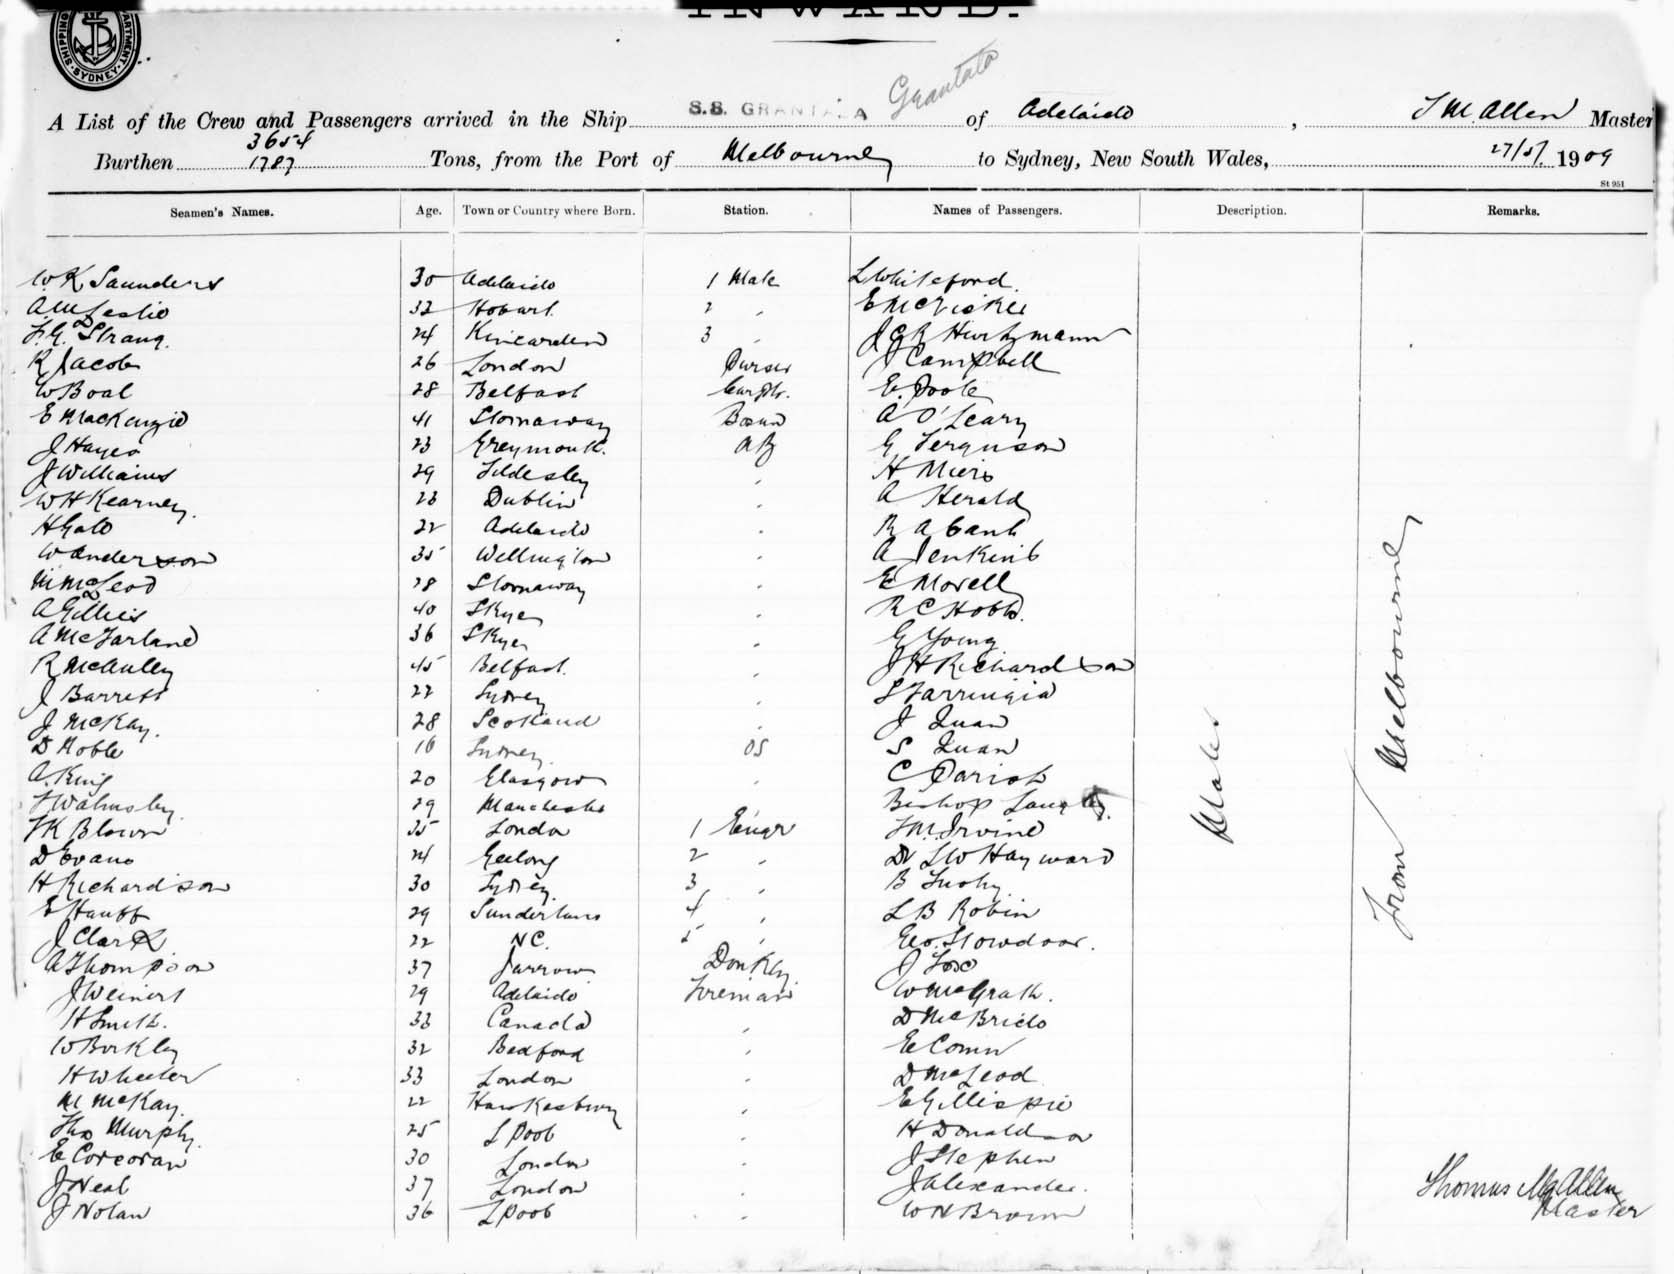 INWARD.
SHIPPING DEPARTMENT SYDNEY
A List of the Crew and Passengers arrived in the Ship S.S. GRANTALA Grantala of Adelaide, T M. Allen Master
3654
Burthen 1787 Tons, from the Port of Melbourne to Sydney, New South Wales, 27/5/ 1909
St 951
Seamen's Names. Age. Town or Country where Born. Station. Names of Passengers. Description. Remarks.
W K Saunders 30 Adelaide 1 Mate L Whiteford
A M Leslie 32 Hobart 2 "
F. G. Strang. 24 Kincarden 3 " J C R Hirtzmann
R Jacobs 26 London Purser J Campbell
W Boal 28 Belfast Carptr. E. Poole
E Mackenzie 41 Stornaway Bosun A O'Leary
J Hayes 23 Greymouth. AB G Ferguson
J Williams 29 Tildesley " H Miers
W H Kearney. 23 Dublin " A Herald
H Gale 22 Adelaide " R A Cant
W Anderson 35 Wellington " A Jenkins
M McLeod 28 Stornaway " E Morell
A Gillies 40 Skye " R C Hobbs.
A McFarland 36 Skye " G Young
R McAuley 45 Belfast. " J H Richardson
J Barrett 22 Sydney " S Farrugia
J McKay. 28 Scotland " J Quan
D Noble 16 Sydney. OS S Quan
A. King 20 Glasgow " C Parish
F Walmsley. 29 Manchester Bishop
F K Blown 35 London 1 Engr T M. Irvine
D Evans 24 Geelong 2 " Dr L W Hayward
H Richardson 30 Sydney. 3 " B
E Hauff 29 Sunderland 4 " L B Robin
J Clark 22 NC. 5 " Geo. Slowdoor.
A Thompson 37 Jarrow Donkey J Fox
J Weinert 29 Adelaide Fireman W McGrath.
H Smith. 33 Canada " D McBride
W Birkley 32 Bedford " E Comn
H Wheeler 33 London " D McLeod
M McKay. 22 Hawkesbury " E Gillispie
Thos Murphy. 25 L Pool " H Donaldson
E Corcoran 30 London " J Stephen
J Neal 37 London " J Alexander.
J Nolan 36 L Pool " W H Brown
Males
From Melbourne
Thomas M. Allen
Master